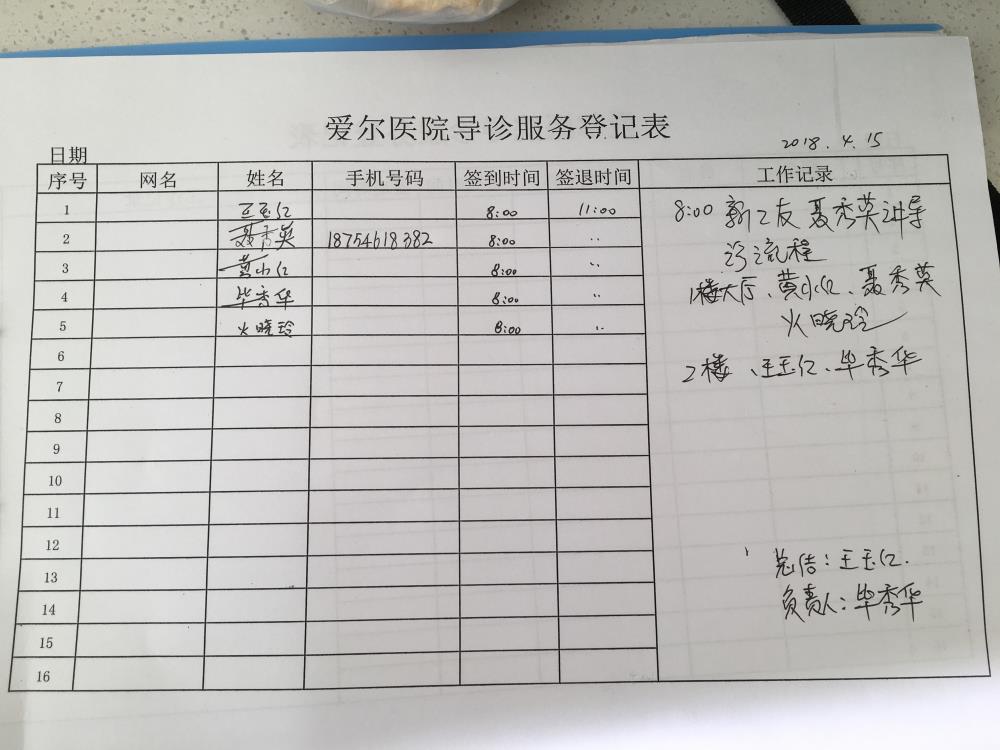 爱尔医院导诊服务登记表
2018.4.15
日期
序号 网名 姓名 手机号码 签到时间 签退时间 工作记录
1 王玉仁 8:00 11:00
2 聂秀英 18754618382 8:00 ..
3 黄小仁 8:00 ..
4 毕秀华 8:00 ..
5 火晓玲 8:00 ..
6
7
8
9
10
11
12
13
14
15
16
8:00 新工友 聂秀英讲导
诊流程
1楼大厅、黄小仁、聂秀英
火晓玲
2楼、王玉仁、毕秀华
总结:王玉仁.
负责人:毕秀华